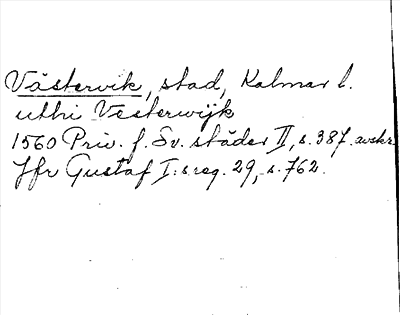 Västervik, stad, Kalmar l.
uthi Vesterwijk
1560 Priv. f. Sv. städer II, s. 387. avskr.
Jfr Gustaf I:s reg. 29, s. 762.